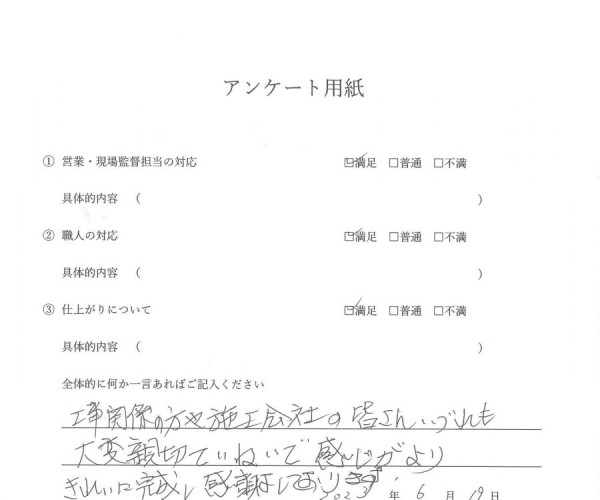 アンケート用紙
① 営業・現場監督担当の対応 ☑満足 □普通 □不満
具体的内容 （ ）
② 職人の対応 ☑満足 □普通 □不満
具体的内容 （ ）
③ 仕上がりについて ☑満足 □普通 □不満
具体的内容 （ ）
全体的に何か一言あればご記入ください
工事関係の方や施工会社の皆さんいづれも
大変親切ていねいで感じがよく
きれいに完成し感謝しております。
2023年 6月 19日